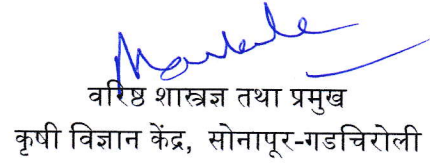 वरिष्ठ शास्त्रज्ञ तथा प्रमुख
कृषी विज्ञान केंद्र, सोनापूर-गडचिरोली